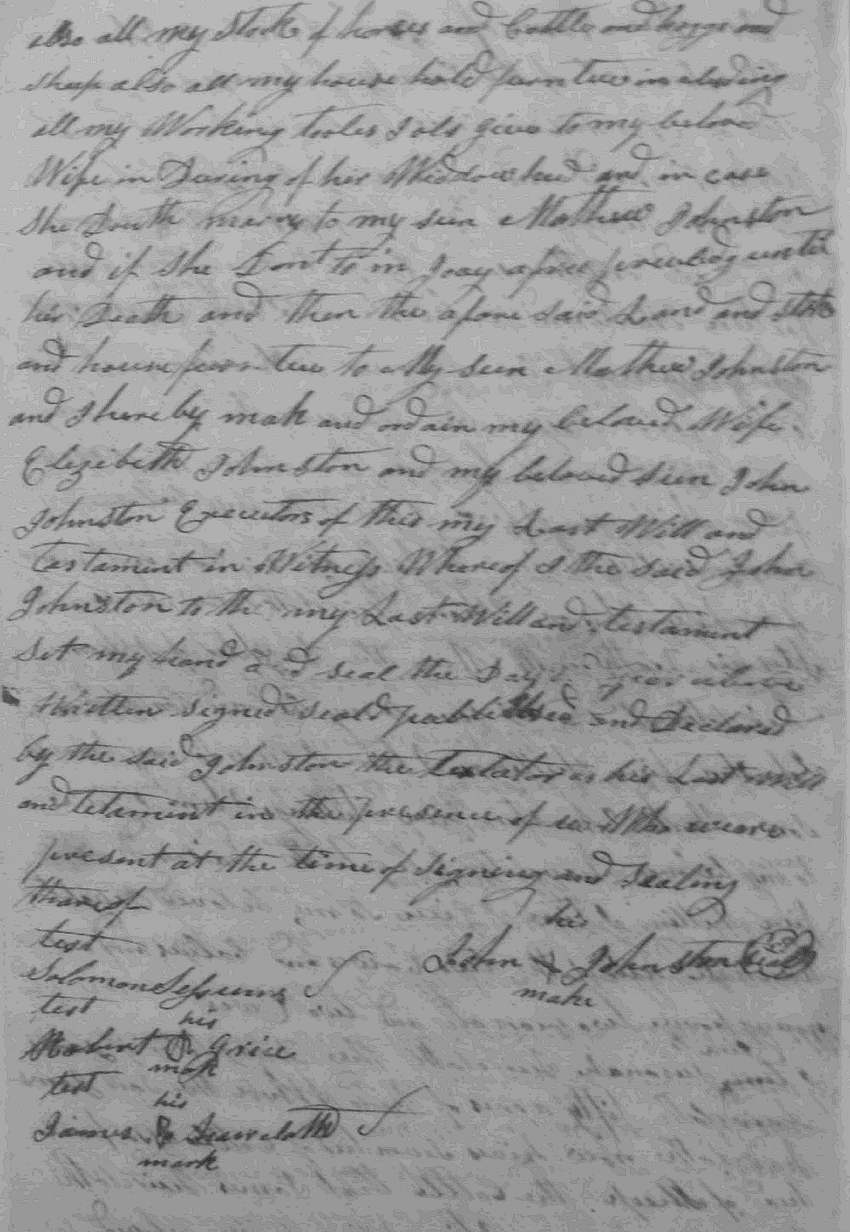 also all my Stock of horses and Cattle and hoggs and
sheep also all my house hold furnture in cluding
all my Working tooles I als give to my belove
Wife in Duering of her Widdow hud and in case
She Douth marry to my sun Mathew Johnston
and if she Dont to in Joay afree until
his Death and then the afore said Land and stok
and house furn ture to My sun Mathew Johnston
and I here by mak and ordain my beloved Wife
Elezibeth Johnston and my beloved sun John
Johnston Executors of this my Last Will and
Testament in Witness Whereof I the said John
Johnston to the my Last Will and testament
set my hand and seal the Day year above
Written signed seald published and Declared
by the said Johnston the Testator as his Last Will
and tetamint in the presence of us Who weare
present at the time of signing and Sealing
thareof
his
test
John Johnston Seal
make
Solomon Sessums
test
his
Robert R Grice
mark
test
his
James
mark